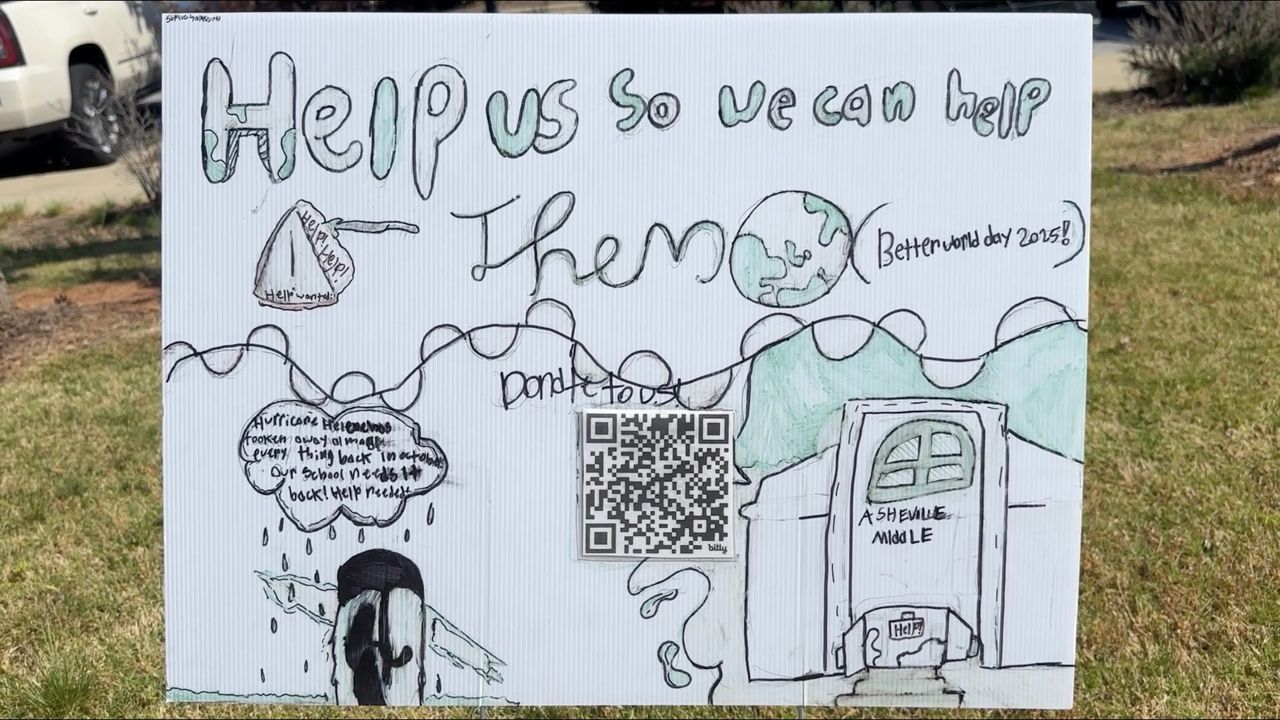 Help us so we can help
Them
(Better world day 2025!)
Help!
Help!
Help wanted!
Donate to us!
Hurricane Helene has
tooken away almost
every thing back in octob
Our School needs it
back! Help needed!
bitly
ASHEVILLE
MIDDLE
Help!